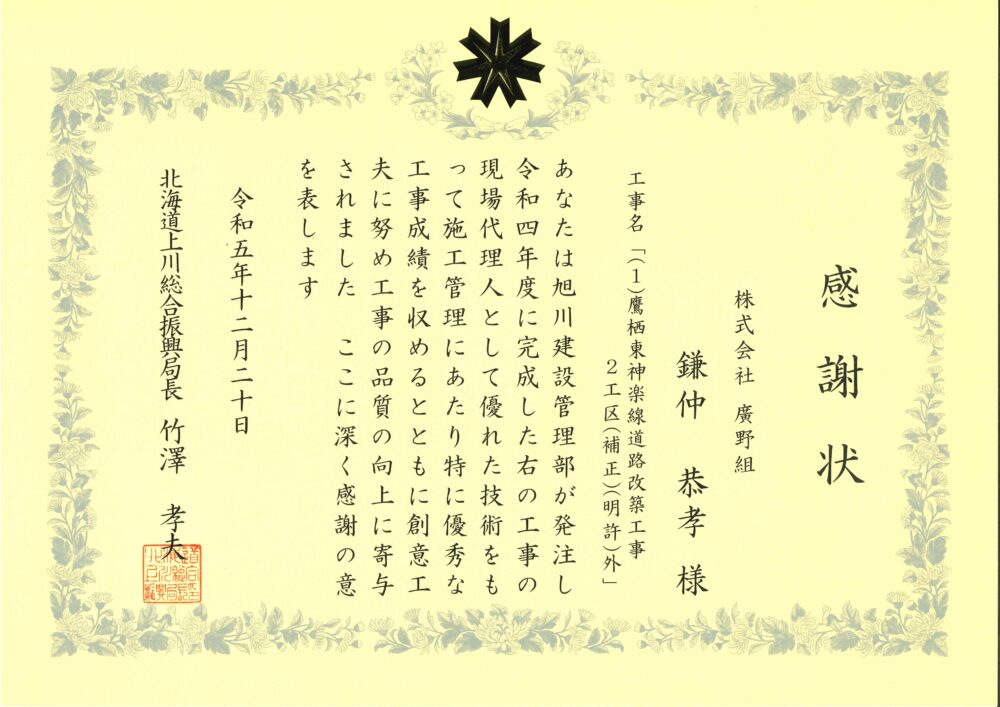 感謝状
株式会社 廣野組
鎌仲 恭孝 様
工事名「(1)鷹栖東神楽線道路改築工事
2工区(補正)(明許)外」
あなたは旭川建設管理部が発注し
令和四年度に完成した右の工事の
現場代理人として優れた技術をも
って施工管理にあたり特に優秀な
工事成績を収めるとともに創意工
夫に努め工事の品質の向上に寄与
されました ここに深く感謝の意
を表します
令和五年十二月二十日
北海道上川総合振興局長 竹澤 孝夫